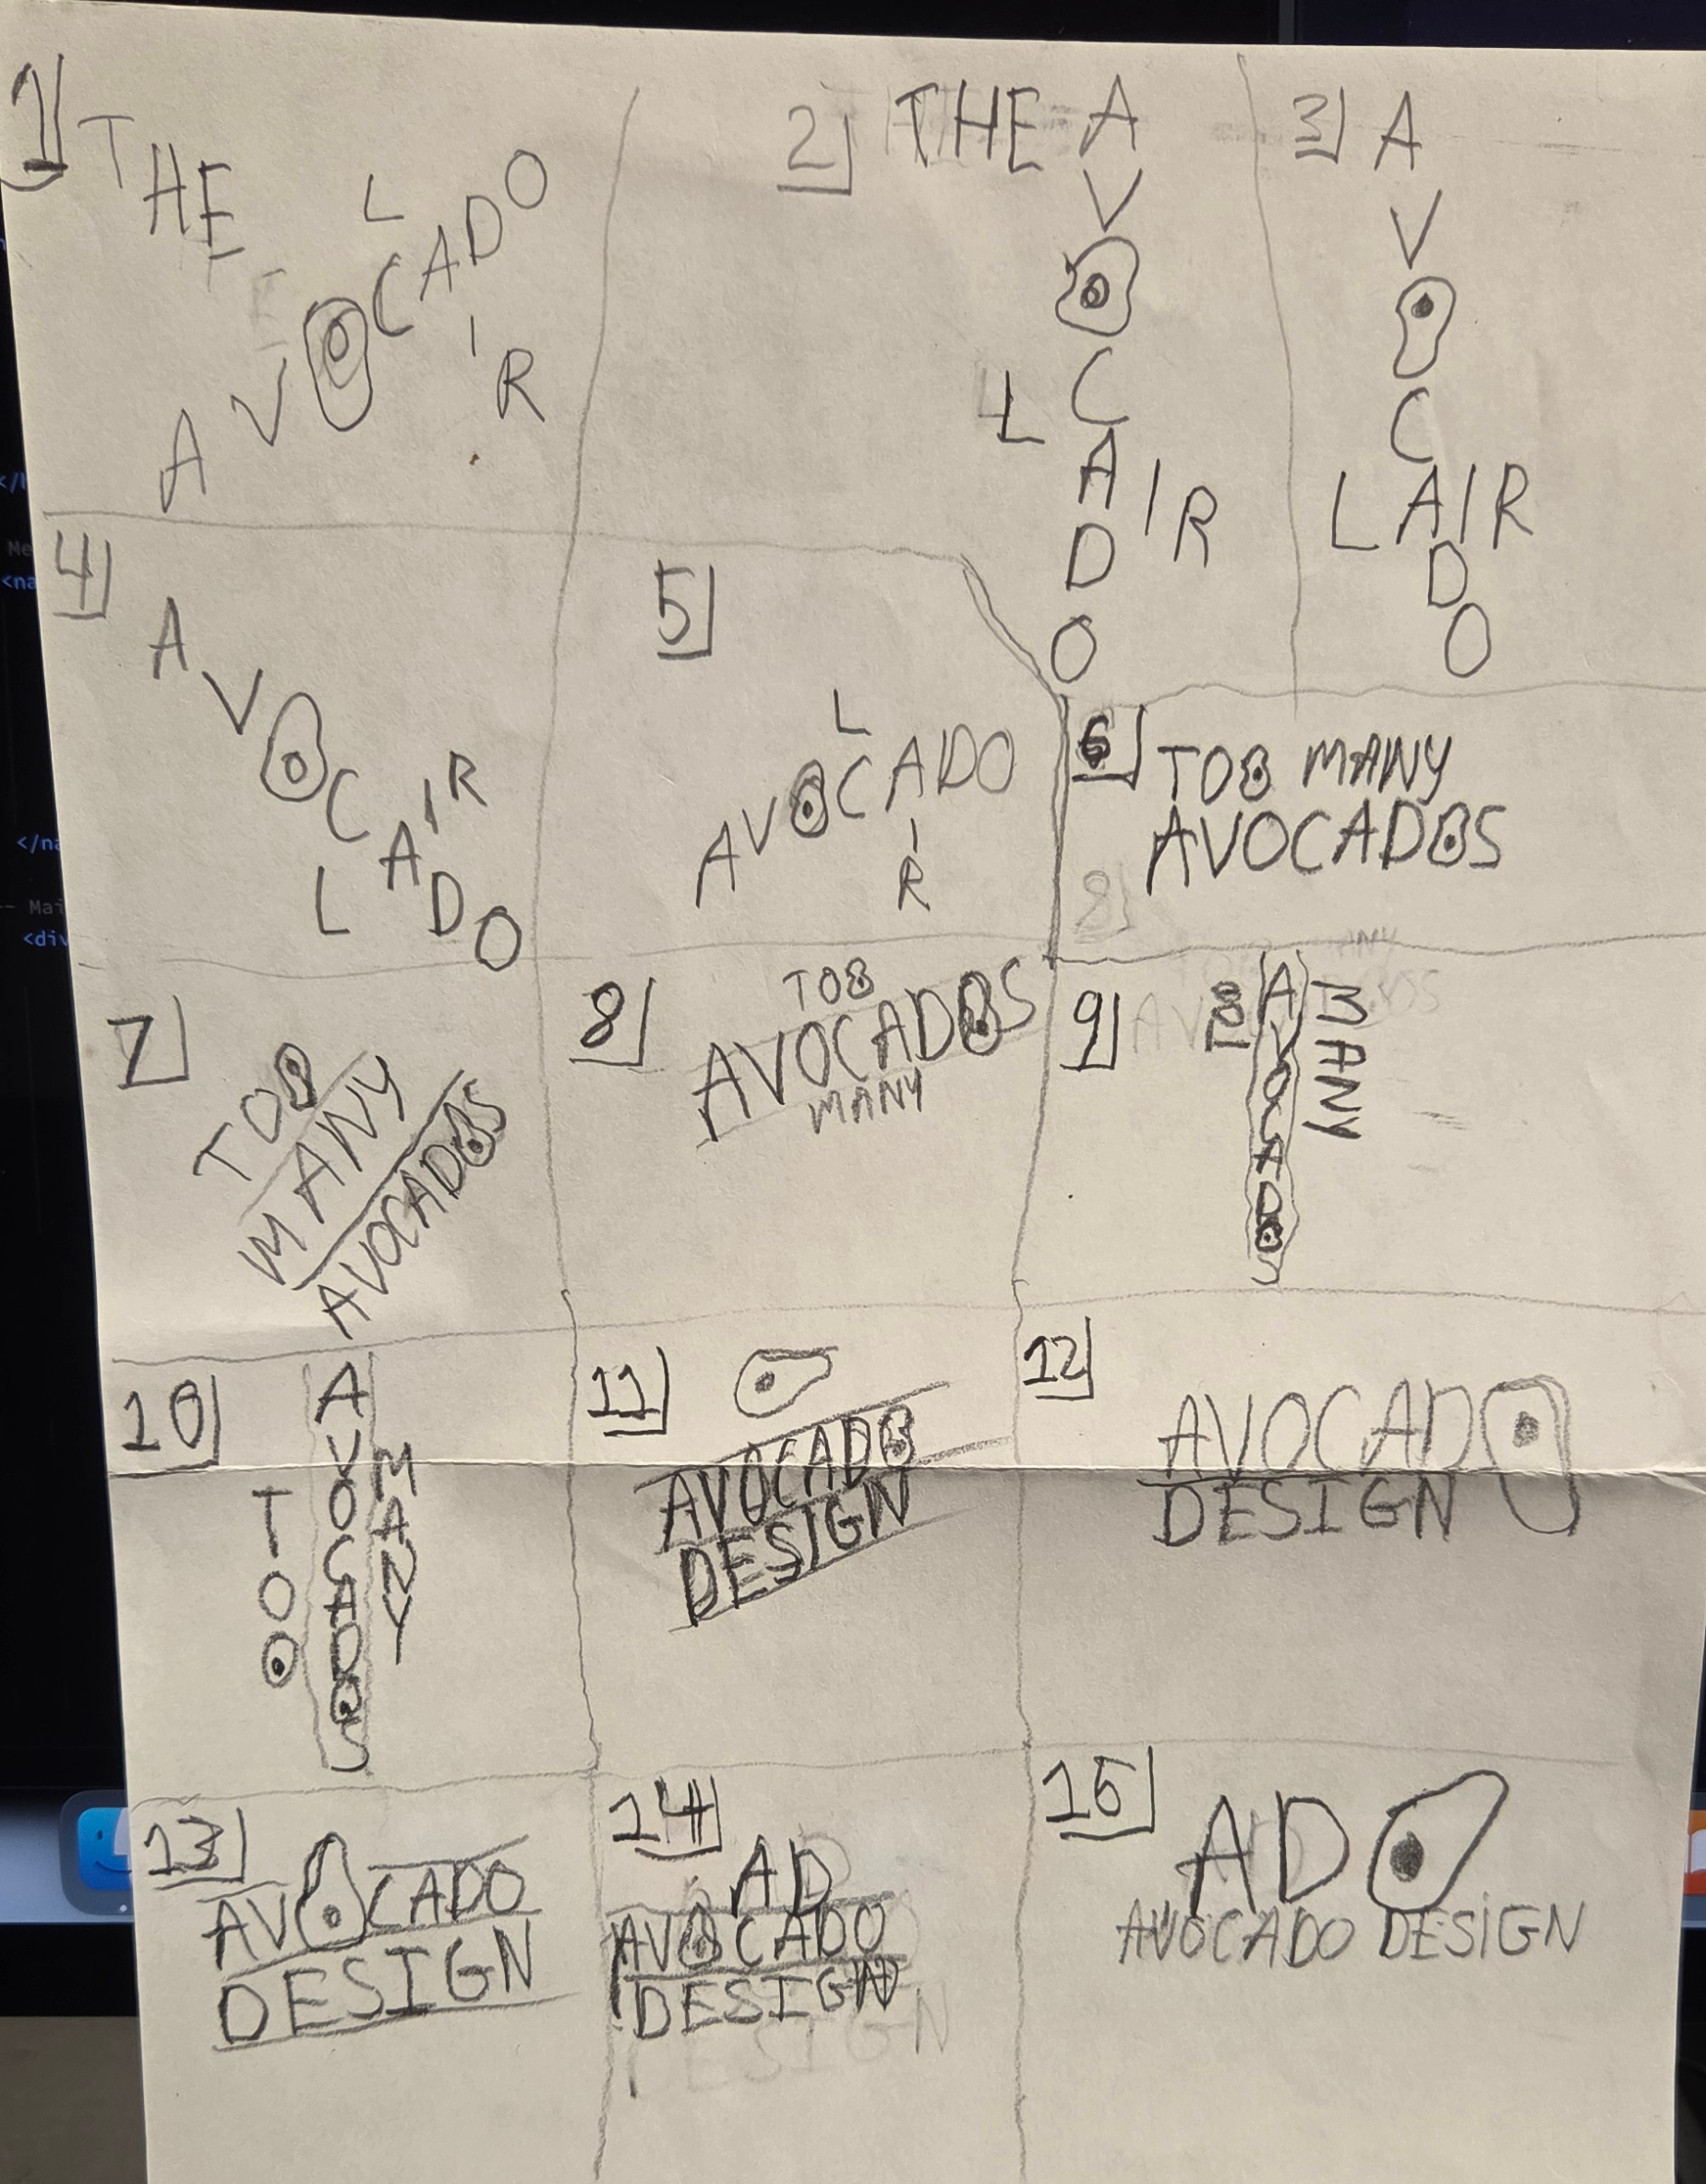 1
THE
L
AVOCADO
I
R
2
THE A
V
O
C
L
A
I
R
D
O
3
A
V
O
C
LAIR
D
O
4
A
V
O
C
A
I
R
L
D
O
5
L
AVOCADO
I
R
6
TOO MANY
AVOCADOS
7
TOO
MANY
AVOCADOS
8
TOO
AVOCADOS
MANY
9
AVOCADOS
MANY
10
TOO
AVOCADOS
MANY
11
AVOCADO
DESIGN
12
AVOCADO
DESIGN
13
AVOCADO
DESIGN
14
AD
AVOCADO
DESIGN
15
AD
AVOCADO DESIGN